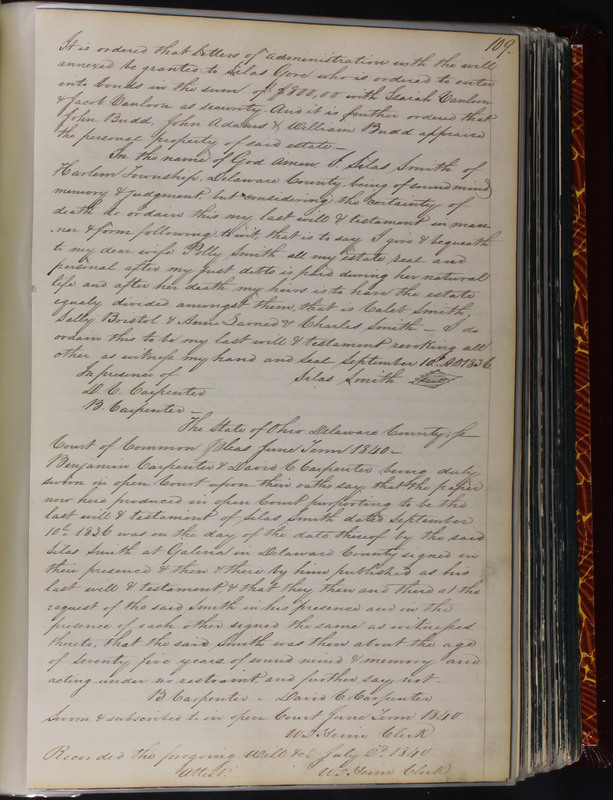 109.
It is ordered that Letters of administration with the will
annexed be granted to Silas Gore who is ordered to enter
into bonds in the sum of $800.00 with Isaiah Vanlorn
& Jacob Vanlorn as security. And it is further ordered that
John Budd, John Adams & William Budd appraise
the personal property of said estate —
In the name of God Amen. I, Silas Smith of
Harlem Township, Delaware County, being of sound mind
memory & judgment, but considering the certainty of
death do ordain this my last will & testament in man
ner & form following, to wit, that is to say I give & bequeath
to my dear wife Polly Smith all my estate real and
personal after my just debts is paid during her natural
life and after her death my heirs is to have the estate
equaly divided amongst them, that is Caleb Smith,
Sally Bristol & Anne Larned & Charles Smith — I do
ordain this to be my last will & testament revoking all
other as witness my hand and seal September 10th AD 1836
In presence of Silas Smith Seal
D. C. Carpenter
B. Carpenter —
The State of Ohio Delaware County, ss
Court of Common Pleas June Term 1840 —
Benjamin Carpenter & David C Carpenter being duly
sworn in open Court upon their oaths say, that the paper
now here produced in open Court purporting to be the
last will & testament of Silas Smith dated September
10th 1836 was on the day of the date thereof by the said
Silas Smith at Galena in Delaware County signed in
their presence & then & there by him published as his
last will & testament, & that they then and there at the
request of the said Smith in his presence and in the
presence of each other signed the same as witnesses
thereto, that the said Smith was then about the age
of seventy five years, of sound mind & memory and
acting under no restraint, and further say not.
B Carpenter . David C Carpenter
Sworn & subscribed to in open Court June Term 1840
Clerk
Recorded the foregoing Will &c July 2d 1840
Attest. Clerk